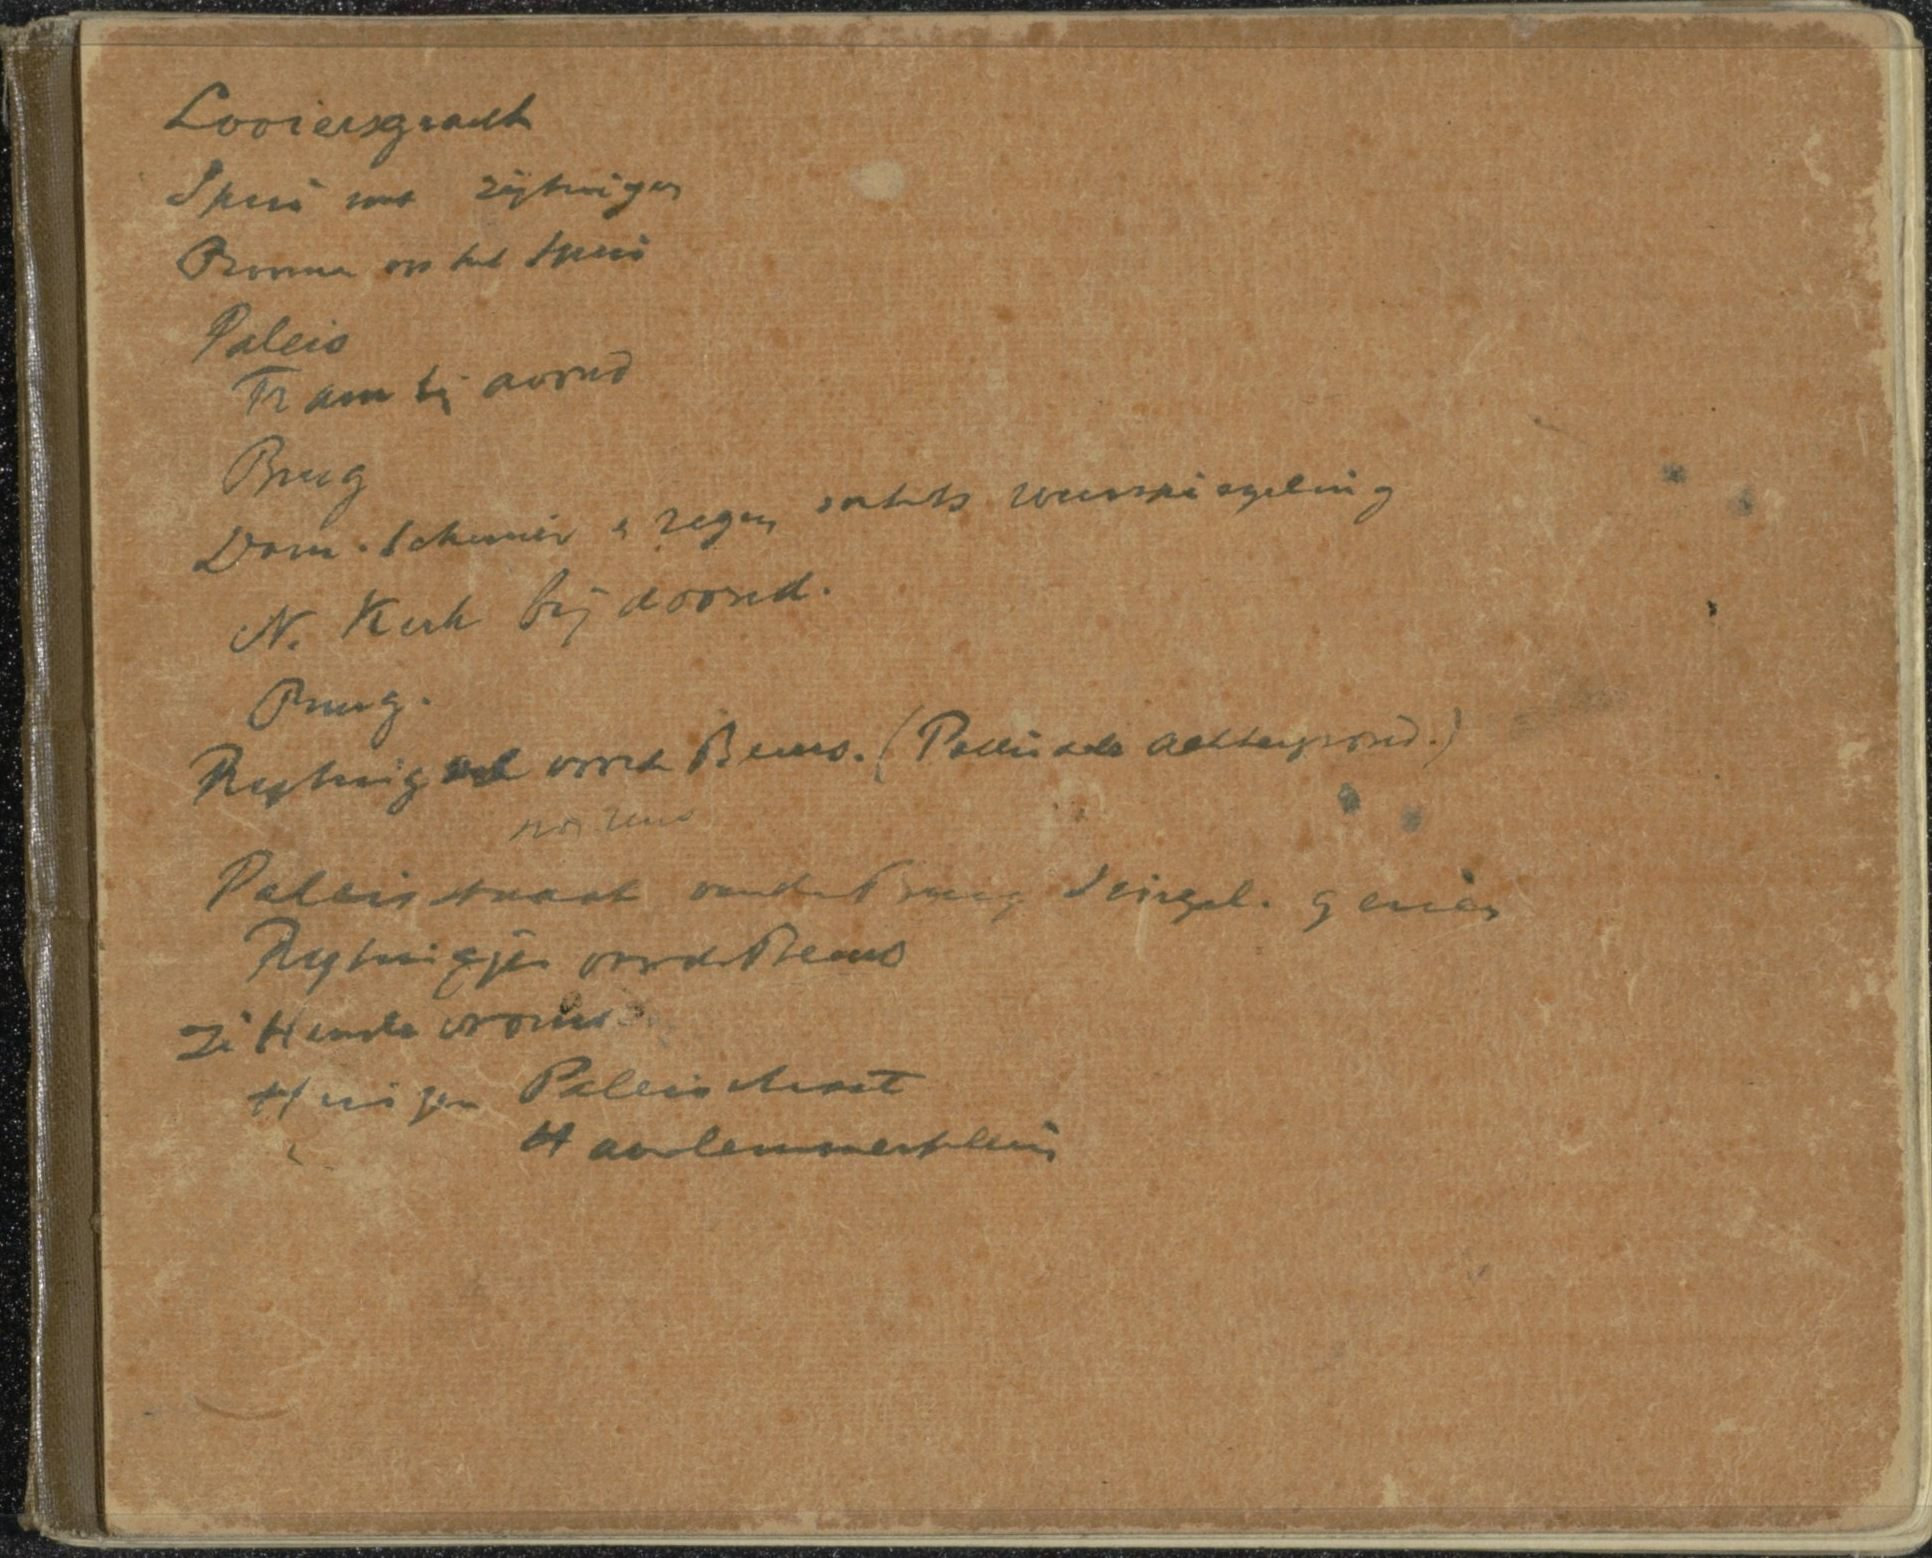 Looiersgracht
Spui met rijtuigen
Boomen op het Spui
Paleis
Tram bij avond
Brug
Dam. Schemer & regen weerspiegeling
N. Kerk bij avond.
Brug.
Rijtuig voor de Beurs. (Paleis achtergrond.)
Paleisstraat van de Brug Singel. gezien
Rijtuigjes voor de Beurs
Zittende vrouw
Huizen Paleisstraat
Haarlemmerplein